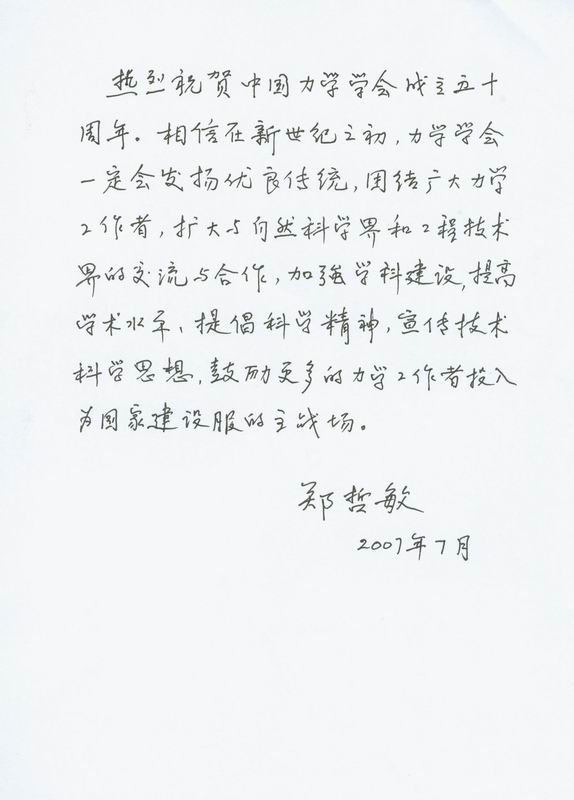 热烈祝贺中国力学学会成立五十
周年。相信在新世纪之初,力学学会
一定会发扬优良传统,团结广大力学
工作者,扩大与自然科学界和工程技术
界的交流与合作,加强学科建设,提高
学术水平、提倡科学精神,宣传技术
科学思想,鼓励更多的力学工作者投入
为国家建设服的主战场。
郑哲敏
2007年7月